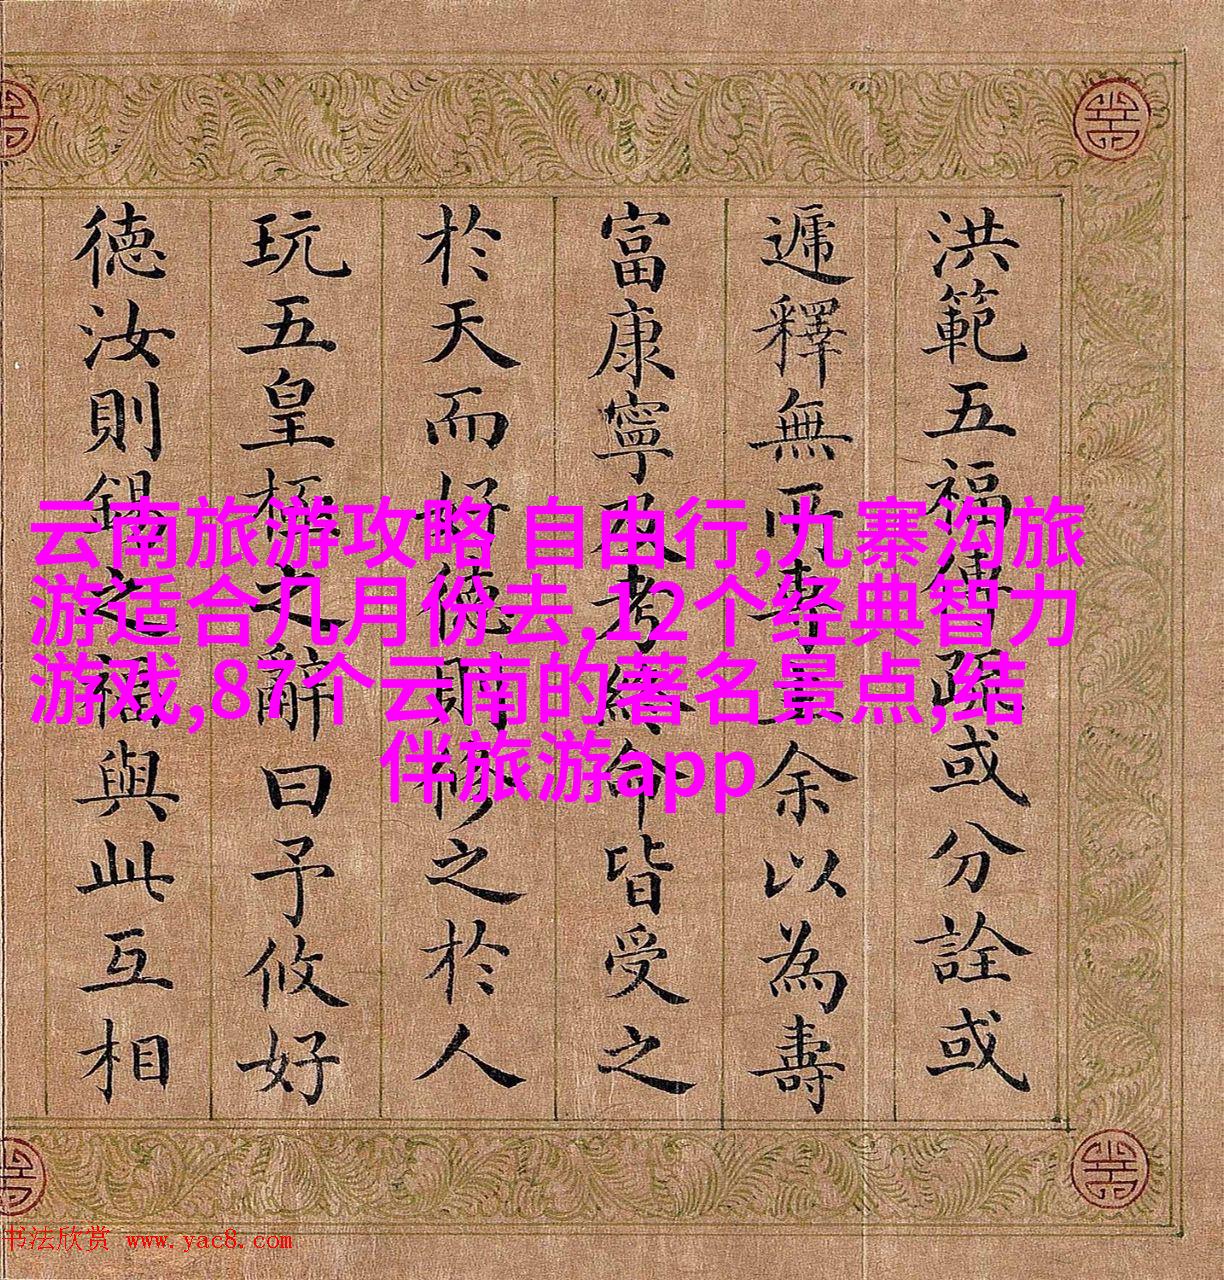 洪範五福傳疏或分詮或
遞釋無所專主余以為壽
富康寧及考終命皆受之
於天而好德則修之於人
玩五皇極之辭曰予攸好
德汝則錫之福與此互相
云南旅游攻略 自由行,九寨沟旅
游适合几月份去,12个经典智力
游戏,87个云南的著名景点,结
伴旅游app
书法欣赏 www.yac8.com